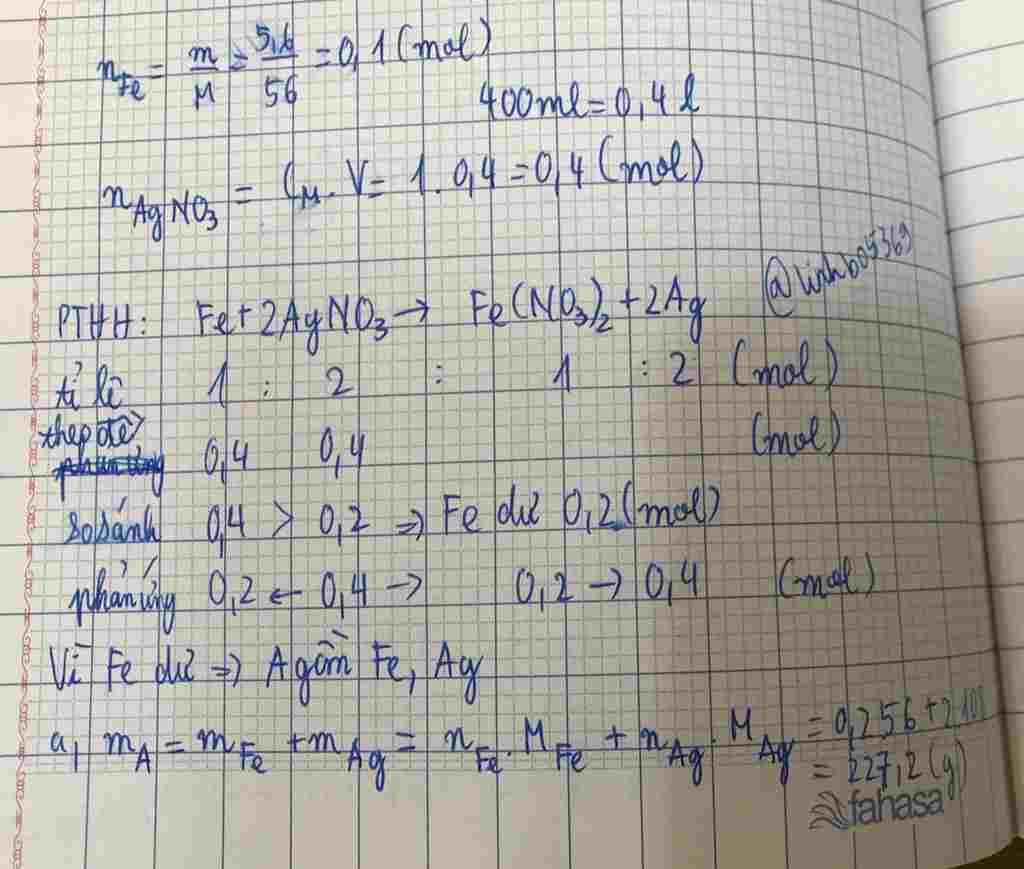 nFe = m/M = 5,6/56 = 0,1 (mol)
400ml = 0,4 l
nAgNO3 = CM. V = 1. 0,4 = 0,4 (mol)
@linhb05369
PTHH: Fe + 2AgNO3 → Fe(NO3)2 + 2Ag
tỉ lệ 1 : 2 : 1 : 2 (mol)
theo đề 0,4 0,4 (mol)
so sánh 0,4 > 0,2 => Fe dư 0,2 (mol)
phản ứng 0,2 ← 0,4 → 0,2 → 0,4 (mol)
Vì Fe dư => A gồm Fe, Ag
a, mA = mFe + mAg = nFe. MFe + nAg. MAg = 0,2 56 + 2.108
= 227,2 (g)
fahasa